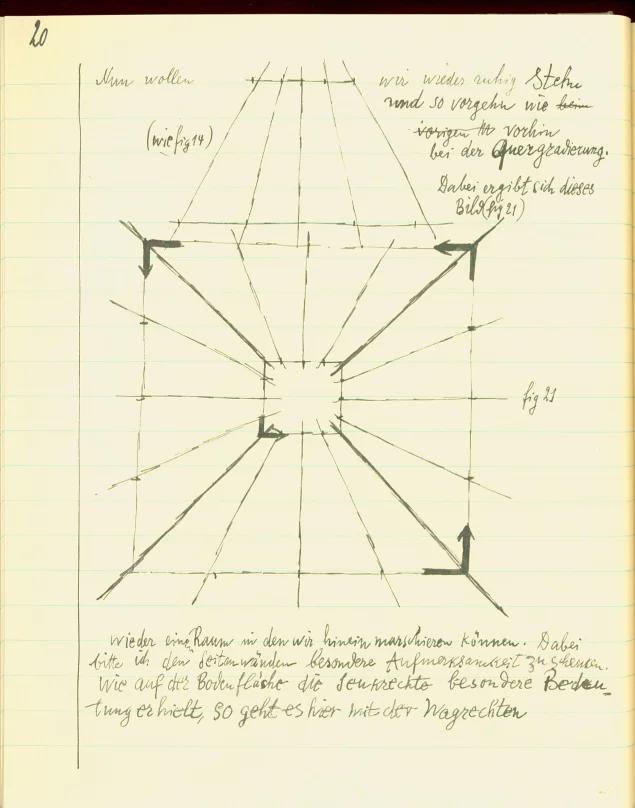 20
Nun wollen wir wieder ruhig Stehn
und so vorgehn wie beim
vorigen vorhin
(wie fig 14)
bei der Quergradierung.
Dabei ergibt sich dieses
Bild (fig 21)
fig 21
wieder eine Raum in den wir hinein marschieren können. Dabei
bitte ich den Seitenwänden besondere Aufmerksamkeit zu schenken.
Wie auf der Bodenfläche die Senkrechte besondere Bedeu-
tung erhielt, so geht es hier mit der Wagrechten